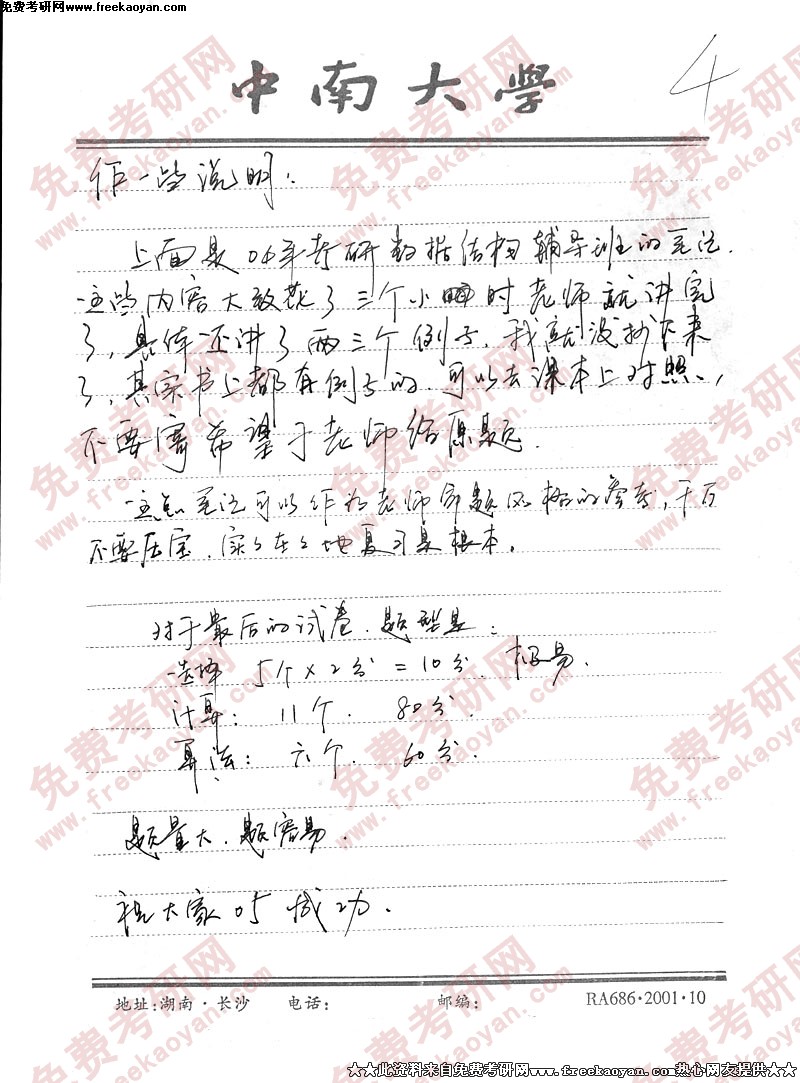 免费考研网www.freekaoyan.com
4
中南大學
作一些说明：
上面是04年考研数据结构辅导班的笔记.
这些内容大致花了三个小时老师就讲完
了，具体还讲了两三个例子，我就没抄下来
了，其实书上都有例子的，可以去课本上对照，
不要寄希望于老师给原题.
这点笔记可以作为老师命题风格的参考，千万
不要压宝，实实在在地复习是根本.
对于最后的试卷，题型是：
选择 5个×2分=10分. 极易.
计算： 11个. 80分.
算法： 六个. 60分.
题量大，题容易.
祝大家05成功.
地址:湖南·长沙 电话: 邮编: RA686·2001·10
★★此资料来自免费考研网www.freekaoyan.com热心网友提供★★